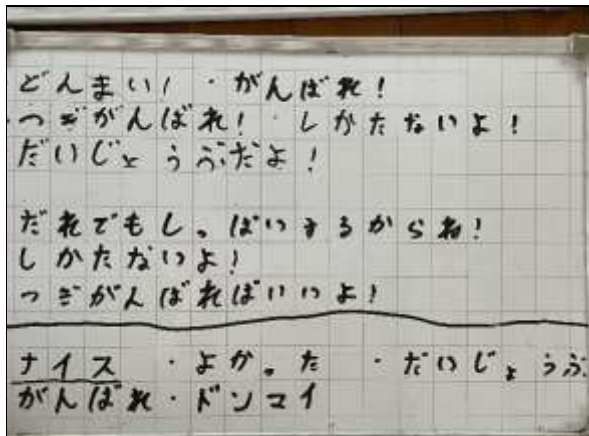 どんまい!・がんばれ!
・つぎがんばれ!・しかたないよ!
だいじょうぶだよ!
だれでもしっぱいするからね!
しかたないよ!
つぎがんばればいいよ!
ナイス・よかった・だいじょうぶ
がんばれ・ドンマイ